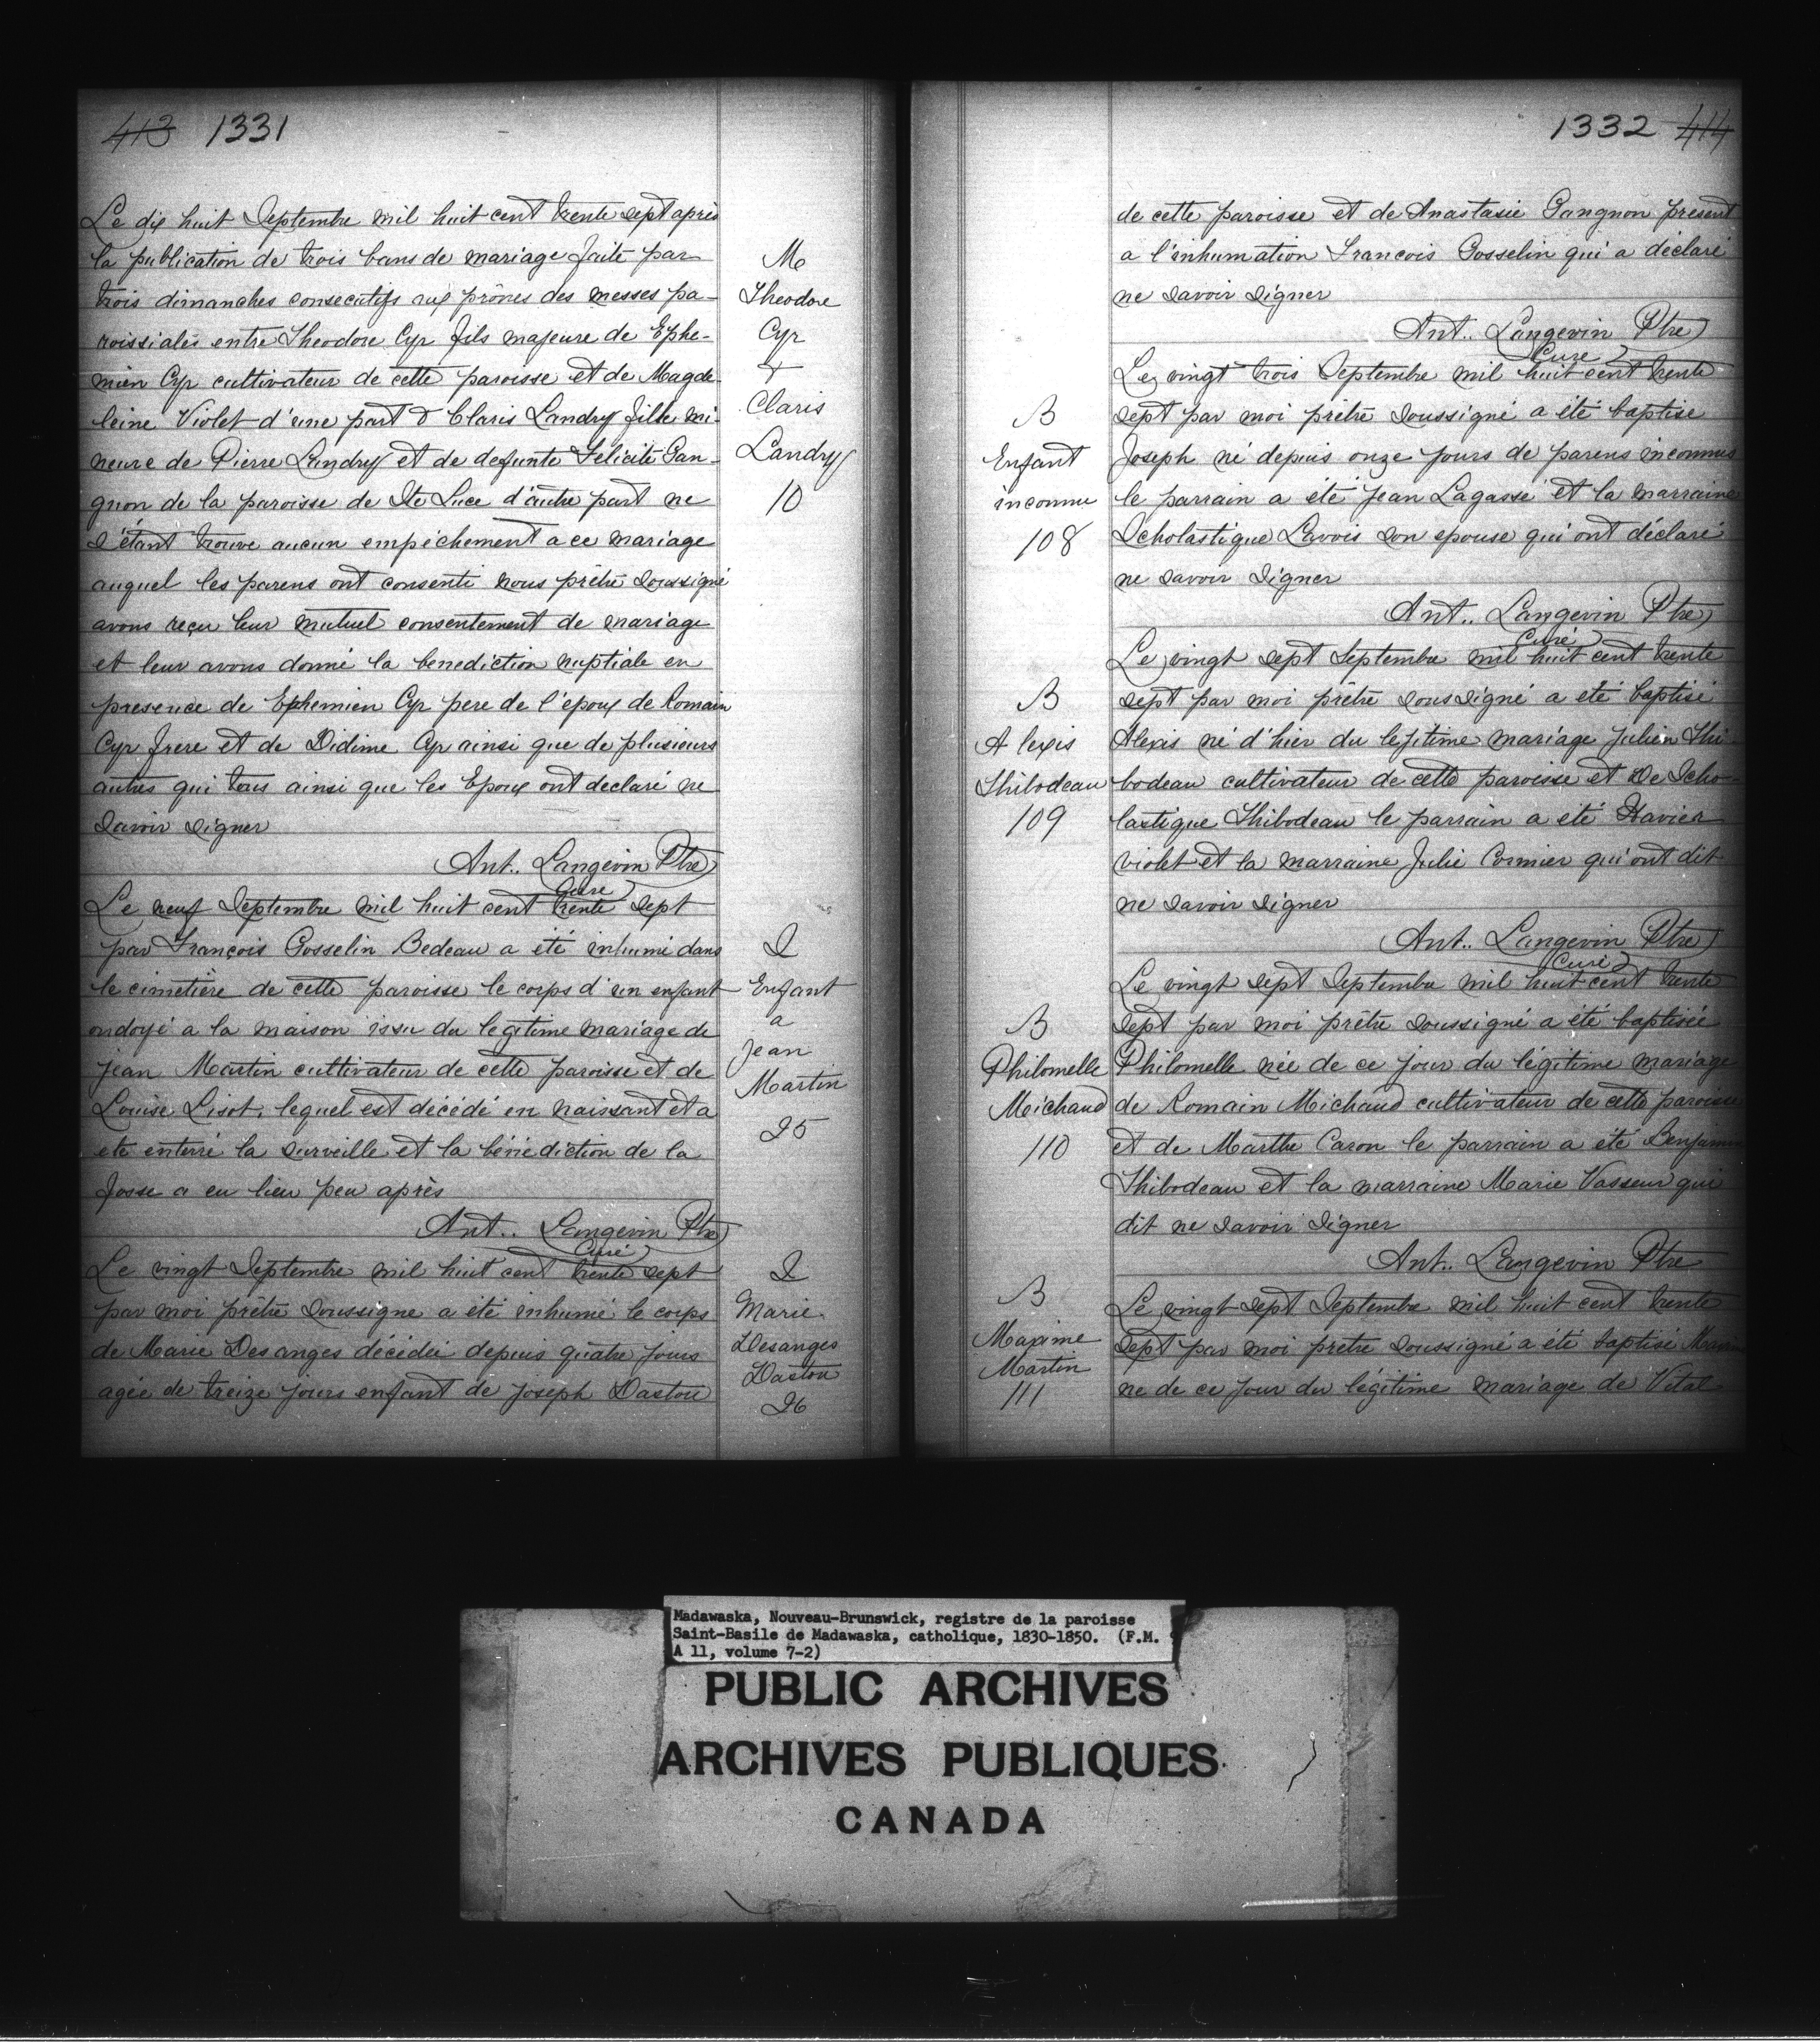 413 1331
Le dix huit Septembre mil huit cent trente sept après
la publication de trois bans de mariage faite par
trois dimanches consecutifs aux prônes des messes pa-
roissiales entre Theodore Cyr fils majeure de Ephe-
mien Cyr cultivateur de cette paroisse et de Magde-
leine Violet d'une part & Claris Landry fille mi-
neure de Pierre Landry et de defunte Felicité Gan-
gnon de la paroisse de Ste Luce d'autre part ne
s'étant trouve aucun empêchement a ce mariage
auquel les parens ont consenti nous prêtre soussigné
avons reçu leur mutuel consentement de mariage
et leur avons donné la benediction nuptiale en
presence de Ephemien Cyr pere de l'époux de Romain
Cyr frere et de Didime Cyr ainsi que de plusieurs
autres qui tous ainsi que les Epoux ont declaré ne
savoir signer
Ant.. Langevin Ptre
Curé
M
Theodore
Cyr
+
Claris
Landry
10
Le neuf Septembre mil huit cent trente sept
par François Gosselin Bedeau a été inhumé dans
le cimetière de cette paroisse le corps d'un enfant
ondoyé a la maison issu du legitime mariage de
Jean Martin cultivateur de cette paroisse et de
Louise Lisot, lequel est décédé en naissant et a
ete enterré la surveille et la bénédiction de la
fosse a eu lieu peu après
Ant.. Langevin Ptre
Curé
S
Enfant
a
Jean
Martin
25
Le vingt Septembre mil huit cent trente sept
par moi prêtre soussigne a été inhumé le corps
de Marie Desanges décédée depuis quatre jours
agée de treize jours enfant de Joseph Dastou
S
Marie
Desanges
Dastou
26
1332 414
de cette paroisse et de Anastasie Gangnon présent
a l'inhumation Francois Gosselin qui a déclaré
ne savoir signer
Ant.. Langevin Ptre
Curé
Le vingt trois Septembre mil huit cent trente
sept par moi prêtre soussigné a été baptise
Joseph né depuis onze jours de parens inconnus
le parrain a été Jean Lagassé et la marraine
Scholastique Lavois son epouse qui ont déclaré
ne savoir signer
Ant.. Langevin Ptre
Curé
B
Enfant
inconnu
108
Le vingt sept Septembre mil huit cent trente
sept par moi prêtre soussigné a été baptisé
Alexis né d'hier du legitime mariage Julien Thi-
bodeau cultivateur de cette paroisse et de Scho-
lastique Thibodeau le parrain a été Xavier
violet et la marraine Julie Cormier qui ont dit
ne savoir signer
Ant.. Langevin Ptre
Curé
B
Alexis
Thibodeau
109
Le vingt sept Septembre mil huit cent trente
sept par moi prêtre soussigné a été baptisée
Philomelle née de ce jour du légitime mariage
de Romain Michaud cultivateur de cette paroisse
et de Marthe Caron le parrain a été Benjamin
Thibodeau et la marraine Marie Vasseur qui
dit ne savoir signer
Ant.. Langevin Ptre
B
Philomelle
Michaud
110
Le vingt sept Septembre mil huit cent trente
sept par moi prêtre soussigné a été baptisé
ne de ce jour du légitime mariage de Vital
B
Maxime
Martin
111
Madawaska, Nouveau-Brunswick, registre de la paroisse
Saint-Basile de Madawaska, catholique, 1830-1850. (F.M. 9
A 11, volume 7-2)
PUBLIC ARCHIVES
ARCHIVES PUBLIQUES
CANADA